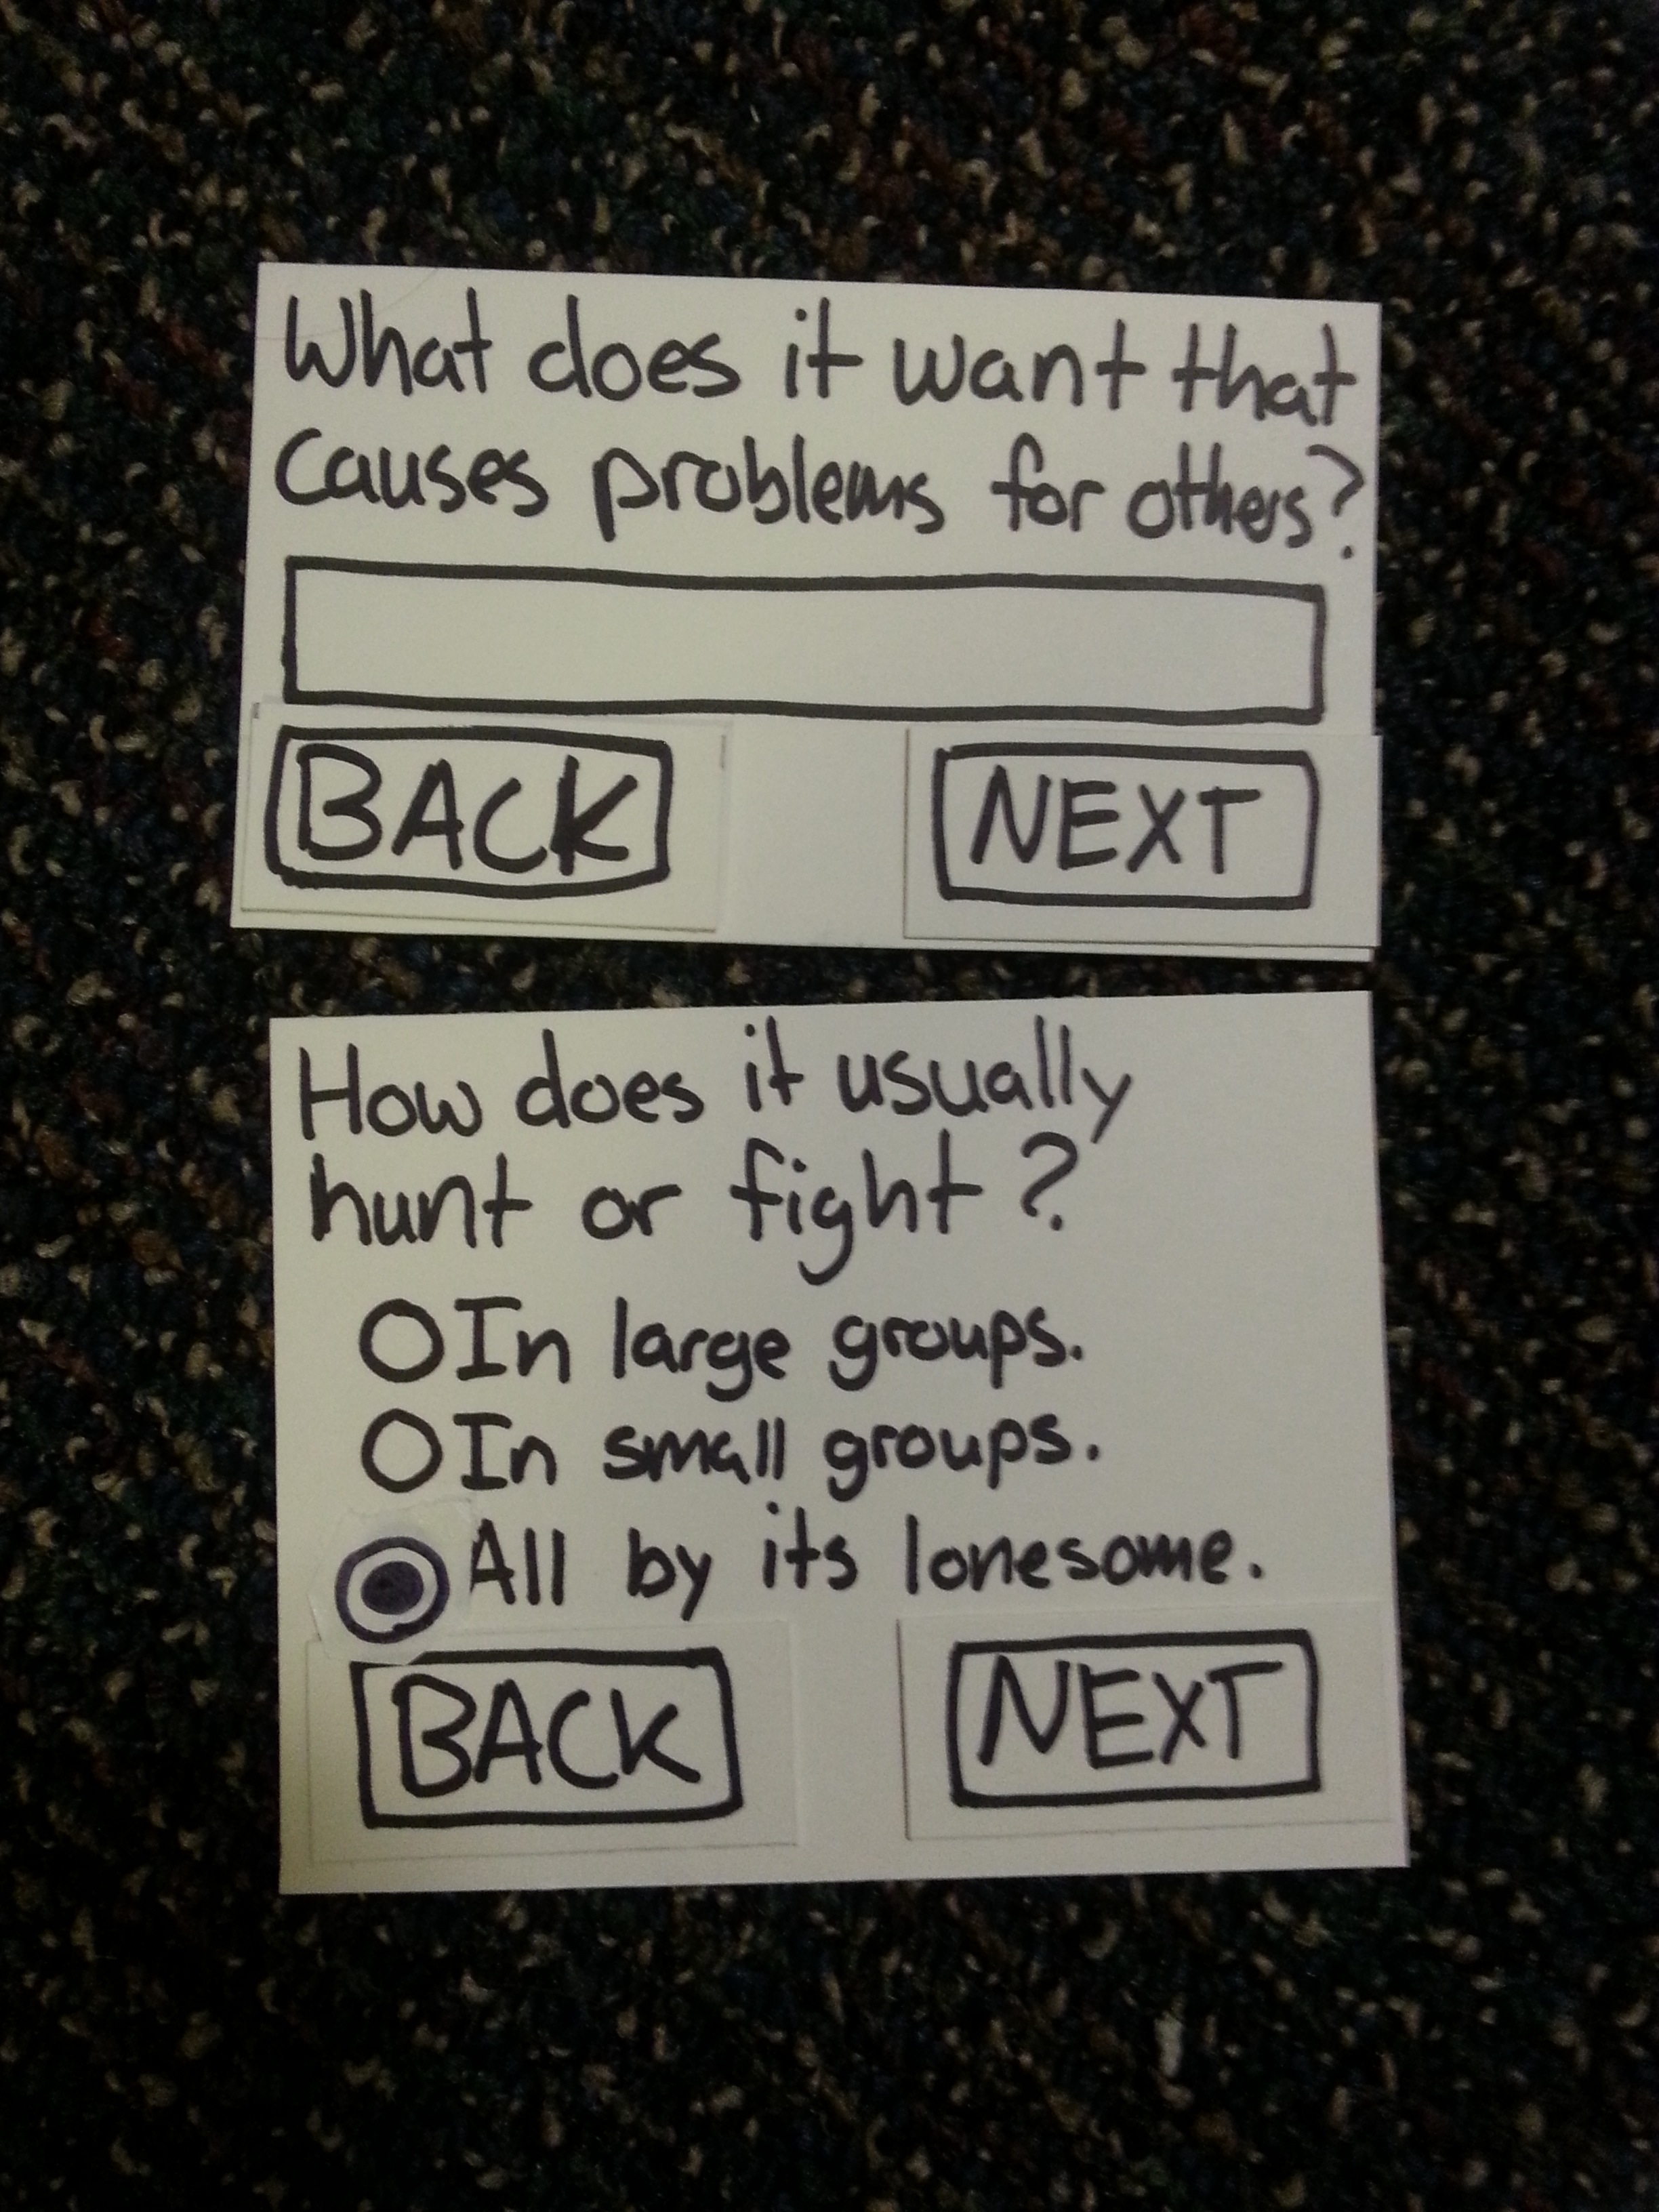 What does it want that
causes problems for others?
BACK NEXT
How does it usually
hunt or fight?
In large groups.
In small groups.
All by its lonesome.
BACK NEXT